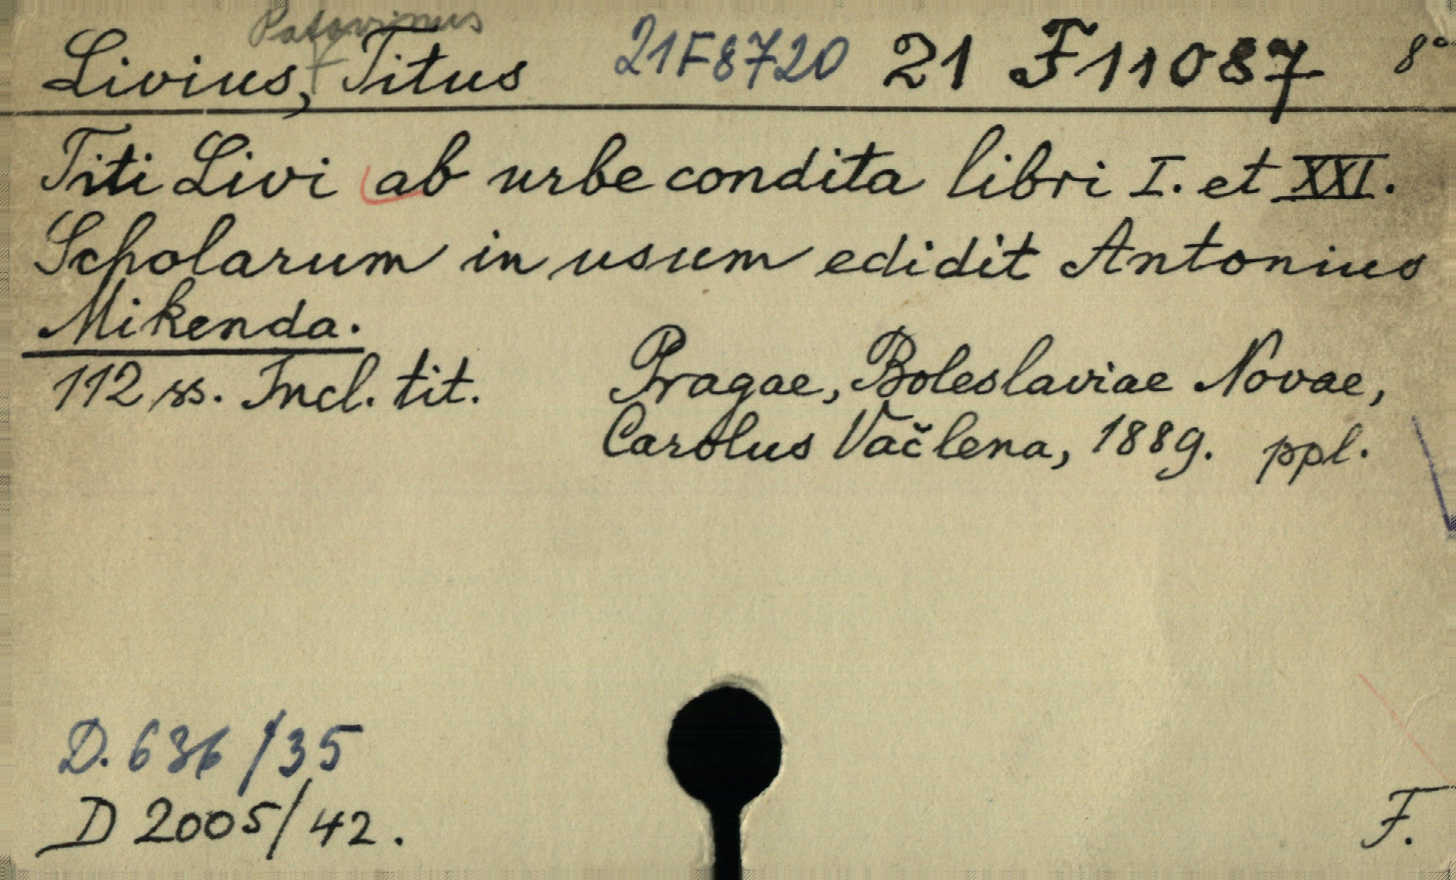 Patavinus
Livius, Titus 21F8720 21 F11087 8°
Titi Livi ab urbe condita libri I. et XXI.
Scholarum in usum edidit Antonius
Mikenda.
112 ss. Incl. tit. Pragae, Boleslaviae Novae,
Carolus Vačlena, 1889. ppl.
D. 636/35
D 2005/42.
F.